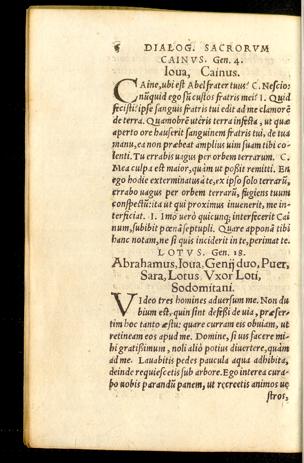 6 DIALOG. SACRORVM
CAINVS. Gen. 4.
Ioua, Cainus.
CAine, ubi est Abel frater tuus? C. Nescio:
nũquid ego sũ custos fratris mei? I. Quid
fecisti? ipse sanguis fratris tui edit ad me clamorē
de terra. Quamobrē utêris terra infesta, ut quæ
aperto ore hauserit sanguinem fratris tui, de tua
manu, ea non præbeat amplius uim suam tibi co-
lenti. Tu errabis uagus per orbem terrarum. C.
Mea culpa est maior, quim ut poßit remitti. En
ego hodie exterminatus à te, ex ipso solo terrarũ,
errabo uagus per orbem terrarũ, fugiens tuum
conspectũ: ita ut qui proximus inuenerit, me in-
terficiat. I. Imò uerò quicunq; interfecerit Cai
num, subibit pœnã septupli. Quare apponã tibi
hanc notam, ne si quis inciderit in te, perimat te.
LOTVS. Gen. 18.
Abrahamus, Ioua, Genij duo, Puer,
Sara, Lotus Vxor Loti,
Sodomitani.
VIdeo tres homines aduersum me. Non du
bium est, quin sint defeßi de uia, præser-
tim hoc tanto æstu: quare curram eis obuiam, ut
retineam eos apud me. Domine, si uis facere mi-
hi gratißimum, noli aliò potius diuertere, quàm
ad me. Lauabitis pedes paucula aqua adhibita,
deinde requiescetis sub arbore. Ego interea cura-
bo uobis parandũ panem, ut recreetis animos ue
stros,